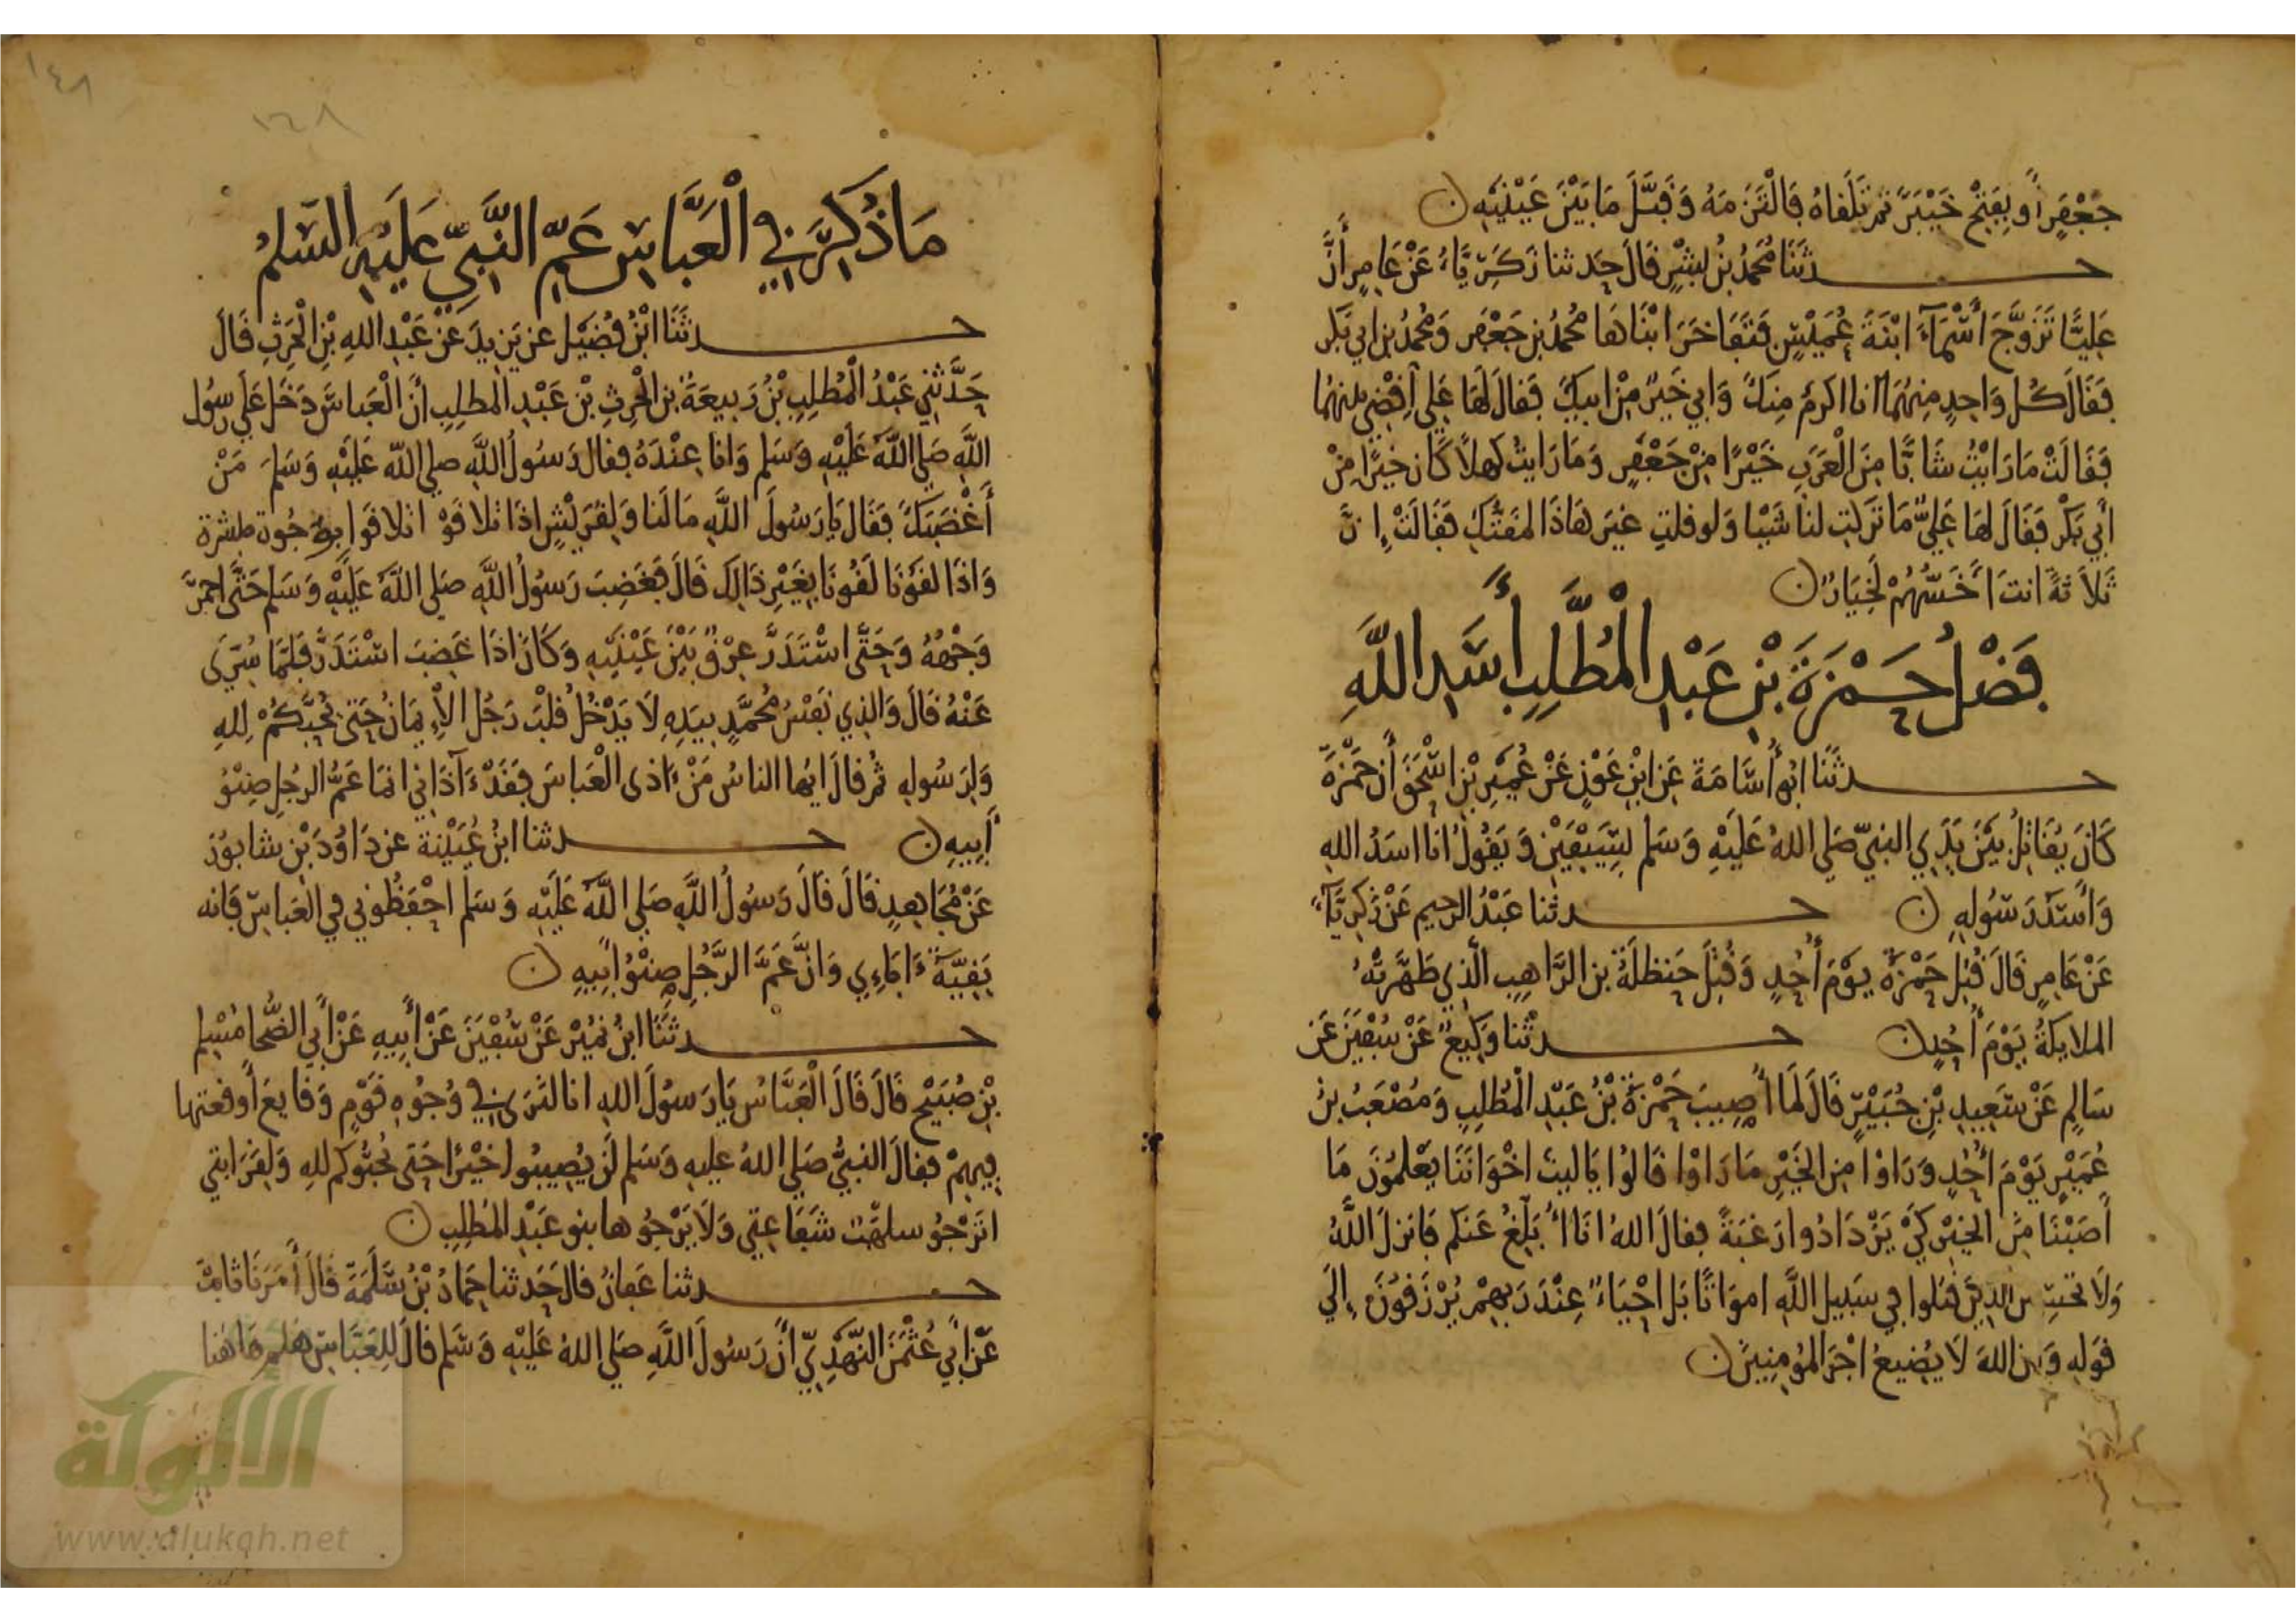 جَعْفَرٍ أَو بِفَتْحِ خَيْبَرَ ثم تَلَقاهُ فَالْتَزَمَهُ وَقَبَّلَ مَا بَيْنَ عَيْنَيْهِ ن
حدثَنَا مُحَمَّدُ بْنُ بِشْرٍ قَالَ حَدثنا زَكَرِيَّاءُ عَنْ عَامِرٍ أَنَّ
عَلِيًّا تَزَوَّجَ أَسْمَاءَ ابْنَةَ عُمَيْسٍ فَتَفَاخَرَ ابْنَاهَا مُحَمَّدُ بن جَعْفَر وَمُحَمَّدُ بن ابي بَكر
فَقَالَ كُل وَاحِدٍ مِنهُمَا انا اكرمُ مِنكَ وَابي خَيْرٌ مِنْ ابيكَ فَقالَ لَهَا عَلي اقْضِي بينهُما
فَقَالَتْ مَا رَايْتُ شَابًّا مِنَ الْعَرَبِ خَيْرًا مِنْ جَعْفَرٍ وَمَا رَايتُ كَهلًا كَان خَيرًا مِنْ
أَبي بَكْر فَقَالَ لهَا عَلِيٌّ مَا تَرَكتِ لنا شَيْا وَلو قلتِ غيرَ هَاذَا لمقَتُّكِ فَقَالَتْ إِنَّ
ثَلَاثَةً انتَ اخَسُّهُمْ لَخِيَارٌ ن
فَضْلُ حَمْزَةَ بْنِ عَبْدِ الْمُطَّلِبِ أَسَدِ اللَّهِ
حدثَنَا ابُو أُسَامَةَ عَنِ ابْنِ عَوْنٍ عَنْ عُمَيْرِ بْنِ اسْحَقَ أَن حَمْزَةَ
كَانَ يُقَاتِلُ بَيْنَ يَدَيِ النبيّ صَلى اللهُ عَلَيْهِ وَسَلم بِسَيْفَيْنِ وَيَقُولُ انا اسَدُ اللهِ
وَأَسَدُ رَسُولِهِ ن حدثنا عَبْدُ الرحيم عَنْ زَكَرِيَّآءَ
عَنْ عَامِرٍ قَالَ قُتِلَ حَمْزَةُ يَوْمَ أُحُدٍ وَقُتِلَ حَنظلَةُ بن الرَّاهِبِ الَّذِي طَهَّرَتْهُ
الملايكَةُ يَوْمَ أُحُدٍ ن حدثنا وَكِيعٌ عَنْ سُفْيَنَ عَن
سَالِمٍ عَنْ سَعِيدِ بْنِ جُبَيْرٍ قَالَ لَمَّا أُصِيبَ حَمْزَةُ بْنُ عَبْدِ الْمُطلِبِ وَمُصْعَبُ بنُ
عُمَيْرٍ يَوْمَ أُحُدٍ وَرَاوْا مِن الخَيْرِ مَا رَاوْا قَالُوا يَا ليتَ اخْوَانَنَا يَعْلَمُونَ مَا
أَصَبْنَا مِنَ الخيْرِ كَيْ يَزْدَادُوا رَغبَةً فقالَ اللهُ انَا أُبَلِّغُ عَنكم فَانزلَ اللَّهُ
وَلَا تحسبن الذِينَ قتلوا فِي سَبِيلِ اللَّهِ اموَاتًا بَل احْيَاءٌ عِنْدَ رَبهِمْ يُرْزَقُونَ إِلَى
قولهِ وَان اللهَ لَا يُضِيعُ اجْرَ المُومِنِينَ ن
مَا ذُكِرَ فِي الْعَبَّاسِ عَمِّ النَّبِيِّ عَلَيْهِ السَّلمُ
حدثَنَا ابْنُ فُضَيْل عن يَزِيدَ عَنْ عَبْدِ اللهِ بْنِ الْحَرِثِ قَالَ
حَدَّثَنِي عَبْدُ الْمُطلِبِ بْنُ رَبِيعَةَ بن الْحرِثِ بْن عَبْدِ المطلِبِ أنَّ الْعَباسَ دَخَل عَلَى رسُولِ
اللَّهِ صَلى اللَّهُ عَلَيْهِ وَسَلم وَانا عِنْدَهُ فقال رَسُولُ اللَّهِ صلى اللهُ عَلَيْهِ وَسَلمَ مَنْ
أَغْضَبَكَ فَقَال يَا رَسُولَ اللَّهِ مَا لَنا وَلِقُرَيْشٍ اذَا تلاقَوْا تلاقوا بوُجُوه مبشرة
وَاذَا لقُونَا لَقُونَا بِغَيْرِ ذَالِكَ قَالَ فَغَضِبَ رَسُولُ اللَّهِ صَلى اللَّهُ عَلَيْهِ وَسَلم حَتَّى احمَرَّ
وَجْهُهُ وَحَتَّى اسْتَدَرَّ عِرْقٌ بَيْنَ عَيْنَيْهِ وَكَانَ اذَا غَضِبَ اسْتَدَرَّ فَلَمَّا سُرِّيَ
عَنْهُ قَالَ وَالذِي نَفْسُ مُحَمَّدٍ بِيَدِهِ لَا يَدْخُلُ قَلْبَ رَجُل الْإِيمَانُ حَتَى يُحِبَّكُمْ لِلهِ
وَلِرَسُولِهِ ثُم قالَ ايُها الناسُ مَنْ ءَاذى الْعَباسَ فَقَدْ ءَاذَانِي انمَا عَمُّ الرجُلِ صِنْوُ
أَبِيهِ ن حدثنا ابنُ عُيَيْنَة عن دَاوُدَ بْنِ شابُورَ
عَنْ مُجَاهِدٍ قَالَ قَالَ رَسُولُ اللَّهِ صَلى اللَّهُ عَلَيْهِ وَسَلم احْفَظُونِي في العَباسِ فَانه
بَقِيَّةُ ءَابَاءِي وَانَّ عَمَّ الرَّجُلِ صِنْوُ ابِيهِ ن
حدثَنَا ابنُ نمَيْرٍ عَنْ سُفْيَنَ عَنْ أَبِيهِ عَنْ أَبِي الضُّحَا مُسْلِم
بْنِ صُبَيْحٍ قَالَ قَالَ الْعَبَّاسُ يَا رَسُولَ اللهِ انا لنَرَى فِي وُجُوهِ قَوْمٍ وَقَايعَ أَوقعتها
فِيهِمْ فقالَ النبيُّ صَلى اللهُ عليهِ وَسَلم لَن يُصِيبُوا خيْرًا حَتى يُحبُّوكم للهِ وَلِقَرَابتي
اتَرْجُو سلهَب شَفَاعتِي وَلَا يَرْجُوها بنو عَبْدِ المُطلِبِ ن
حدثنا عَفانُ قالَ حَدثنا حَمادُ بْنُ سَلَمَةَ قَالَ أَخبَرَنَا ثَابتٌ
عَن أَبي عُثْمَنَ النَّهْدِيّ أَنَّ رَسُولَ اللَّهِ صَلى اللهُ عَلَيْهِ وَسَلم قالَ لِلعَبَّاسِ هَلم هَاهُنا
١٤٨
١٤٨
الألوكة
www.alukah.net